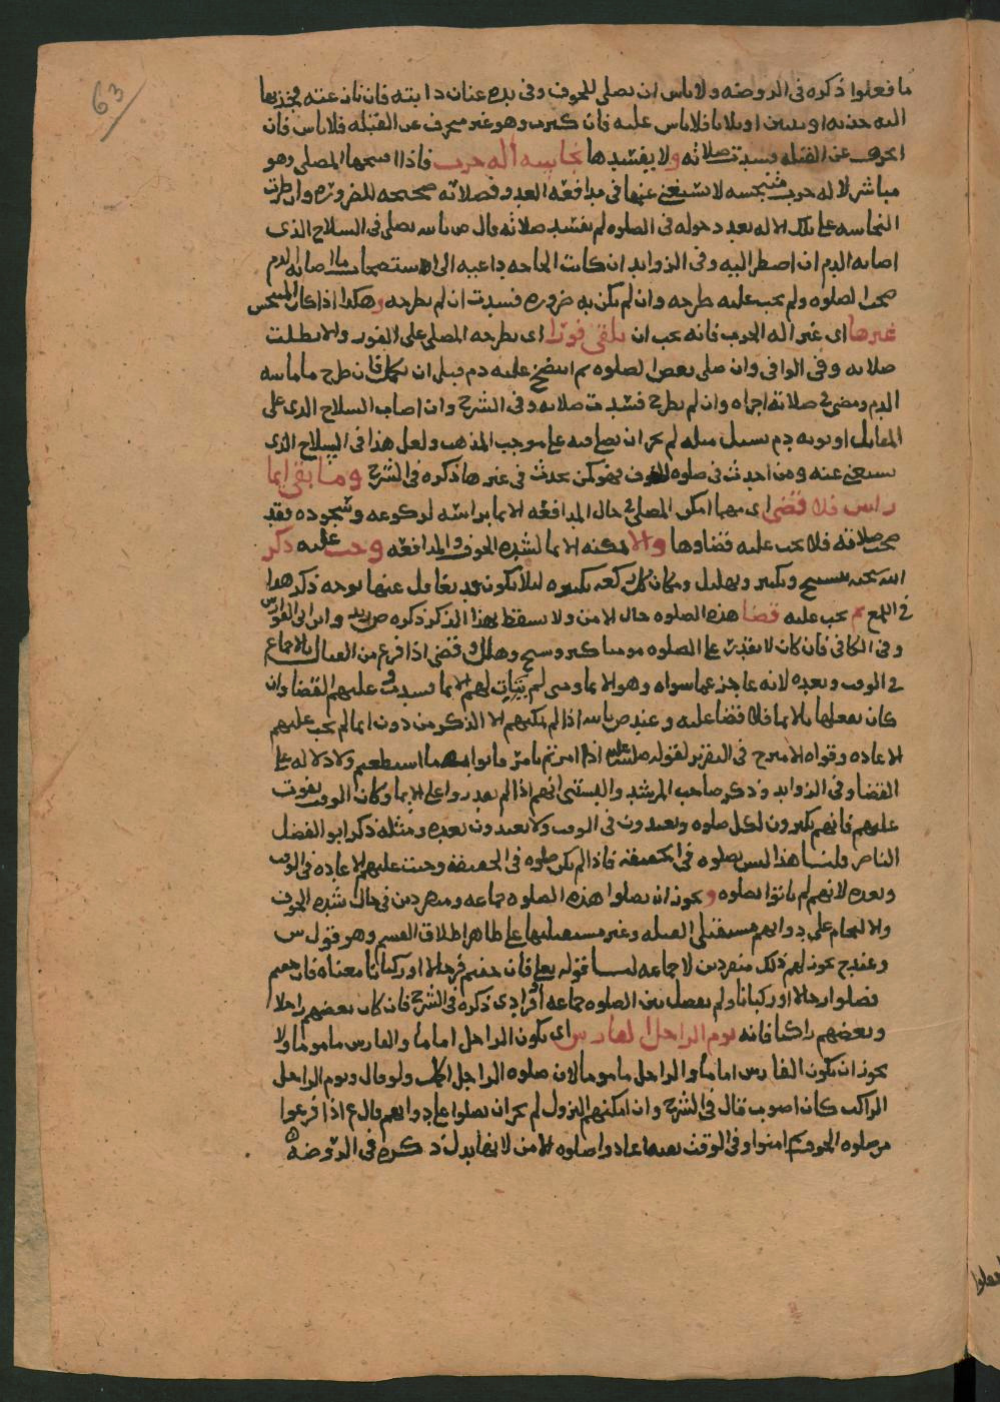 63
ما فعلوا ذكره في الروضه ولا باس ان يصلي للخوف وفي يده عنان دابته فان نازعته فجذبها
اليه جذبه او ثنتين او ثلاثا فلا باس عليه فان كثرت وهو غير منحرف عن القبله فلا باس فان
انحرف عن القبله فسدت صلاته ولا يفسدها نجاسه اله حرب فاذا اصحبها المصلي وهو
مباشر لاله حرب متنجسه لا يستغني عنها في مدافعه العدو فصلاته صحيحه للضروره وان طرت
النجاسه على تلك الاله بعد دخوله في الصلوه لم يفسد صلاته قال ص بالله يصلي في السلاح الذي
اصابه الدم ان اضطر اليه وفي الزوايد ان كانت الحاجه داعيه الى استصحاب ما اصابه الدم
صحت الصلوه ولم يجب عليه طرحه وان لم يكن به ضروره فسدت ان لم يطرحه وهكذا اذا كان المتنجس
غيرها اي غير اله الحرب فانه يجب ان يلقى فورا اي يطرحه المصلي على الفور والا بطلت
صلاته وفي الوافي وان صلى بعض الصلوه ثم انتضح عليه دم قبل ان يكمل فان طرح ما ماسه
الدم ومضى في صلاته اجزاه وان لم يطرح فسدت صلاته وفي الشرح وان اصاب السلاح الذي على
المقاتل او ثوبه دم يسيل مثله لم يجز ان يصلي فيه على موجب المذهب ولعل هذا في السلاح الذي
يستغنى عنه ومن احدث في صلوه الخوف فهو كمن يحدث في غيرها ذكره في الشرح وما بقي ايما
راس فلا قضى اي مهما امكن المصلي في حال المدافعه الايما براسه لركوعه وسجوده فقد
صحت صلاته فلا يجب عليه قضاوها والا يمكنه الايما لشده الخوف والمدافعه وجب عليه ذكر
الله سبحنه بتسبيح وتكبير وتهليل ومكان كل ركعه تكبيره لئلا يكون قد تغافل عنها بوجه ذكر هذا
في اللمع ثم يجب عليه قضا هذه الصلوه حال الامن ولا تسقط بهذا الذكر ذكره ص زيد وابن ابي الفوارس
وفي الكافي فان كان لا يقدر على الصلوه موميا كبر وسبح وهلل وقضى اذا فرغ من القتال بالاجماع
في الوقت وبعده لانه عاجز عما سواه وهو الايما ومتى لم يتات لهم الايما فسدت وعليهم القضا وان
كان يفعلها بالايما فلا قضا عليه وعند ص بالله اذا لم يمكنهم الا الذكر من دون ايما لم يجب عليهم
الاعاده وقواه الامير ح في التقرير لقوله صلى الله عليه اذا امرتم بامر فاتوا به ما استطعتم ولا دلاله على
القضا وفي الزوايد وذكر صاحب المرشد والبستي انهم اذا لم يقدروا على الايما وكان الوقت يفوت
عليهم فانهم يكبرون لكل صلوه ويعيدون في الوقت ولا يعيدون بعده ومثله ذكر ابو الفضل
الناصر قلنا هذا ليس بصلوه في الحقيقه فاذا لم يكن صلوه في الحقيقه وجبت عليهم الاعاده في الوقت
وبعده لانهم لم ياتوا بصلوه ويجوز ان يصلوا هذه الصلوه جماعه ومنفردين في حال شده الخوف
والالتحام على دوابهم مستقبلي القبله وغير مستقبليها على ظاهر اطلاق القسم وهو قول س
وعند ح يجوز لهم ذلك منفردين لا جماعه لنا قوله تعالى فان خفتم فرجالا او ركبانا معناه فان خفتم
فصلوا رجالا او ركبانا ولم يفصل بين الصلوه جماعه او فرادى ذكره في الشرح فان كان بعضهم راجلا
وبعضهم راكبا فانه يوم الراجل الفارس اي يكون الراجل اماما والفارس ماموما ولا
يجوز ان يكون الفارس اماما والراجل ماموما لان صلوه الراجل اكمل ولو قال ويوم الراجل
الراكب كان اصوب قال في الشرح وان امكنهم النزول لم يجز ان يصلوا على دوابهم قال ع اذا فرغوا
من صلوه الخوف ثم امنوا وفي الوقت بقيه اعادوا صلوه الامن لانها بدل ذكره في الروضه